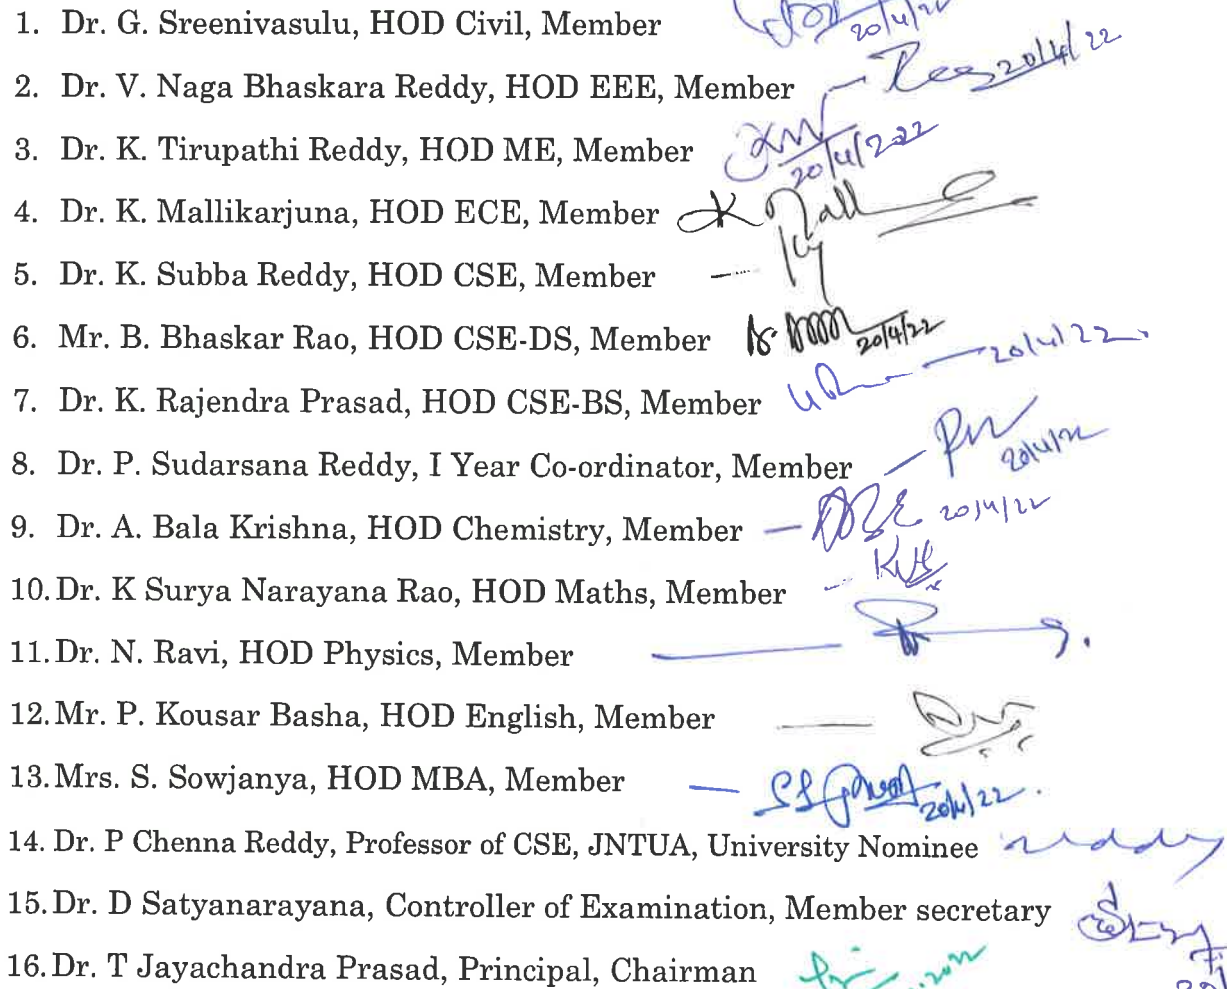 1. Dr. G. Sreenivasulu, HOD Civil, Member 20/4/22
2. Dr. V. Naga Bhaskara Reddy, HOD EEE, Member 20/4/22
3. Dr. K. Tirupathi Reddy, HOD ME, Member 20/4/2022
4. Dr. K. Mallikarjuna, HOD ECE, Member
5. Dr. K. Subba Reddy, HOD CSE, Member
6. Mr. B. Bhaskar Rao, HOD CSE-DS, Member 20/4/22
7. Dr. K. Rajendra Prasad, HOD CSE-BS, Member 20/4/22.
8. Dr. P. Sudarsana Reddy, I Year Co-ordinator, Member 20/4/22
9. Dr. A. Bala Krishna, HOD Chemistry, Member 20/4/22
10. Dr. K Surya Narayana Rao, HOD Maths, Member
11. Dr. N. Ravi, HOD Physics, Member
12. Mr. P. Kousar Basha, HOD English, Member
13. Mrs. S. Sowjanya, HOD MBA, Member 20/4/22.
14. Dr. P Chenna Reddy, Professor of CSE, JNTUA, University Nominee reddy
15. Dr. D Satyanarayana, Controller of Examination, Member secretary
16. Dr. T Jayachandra Prasad, Principal, Chairman